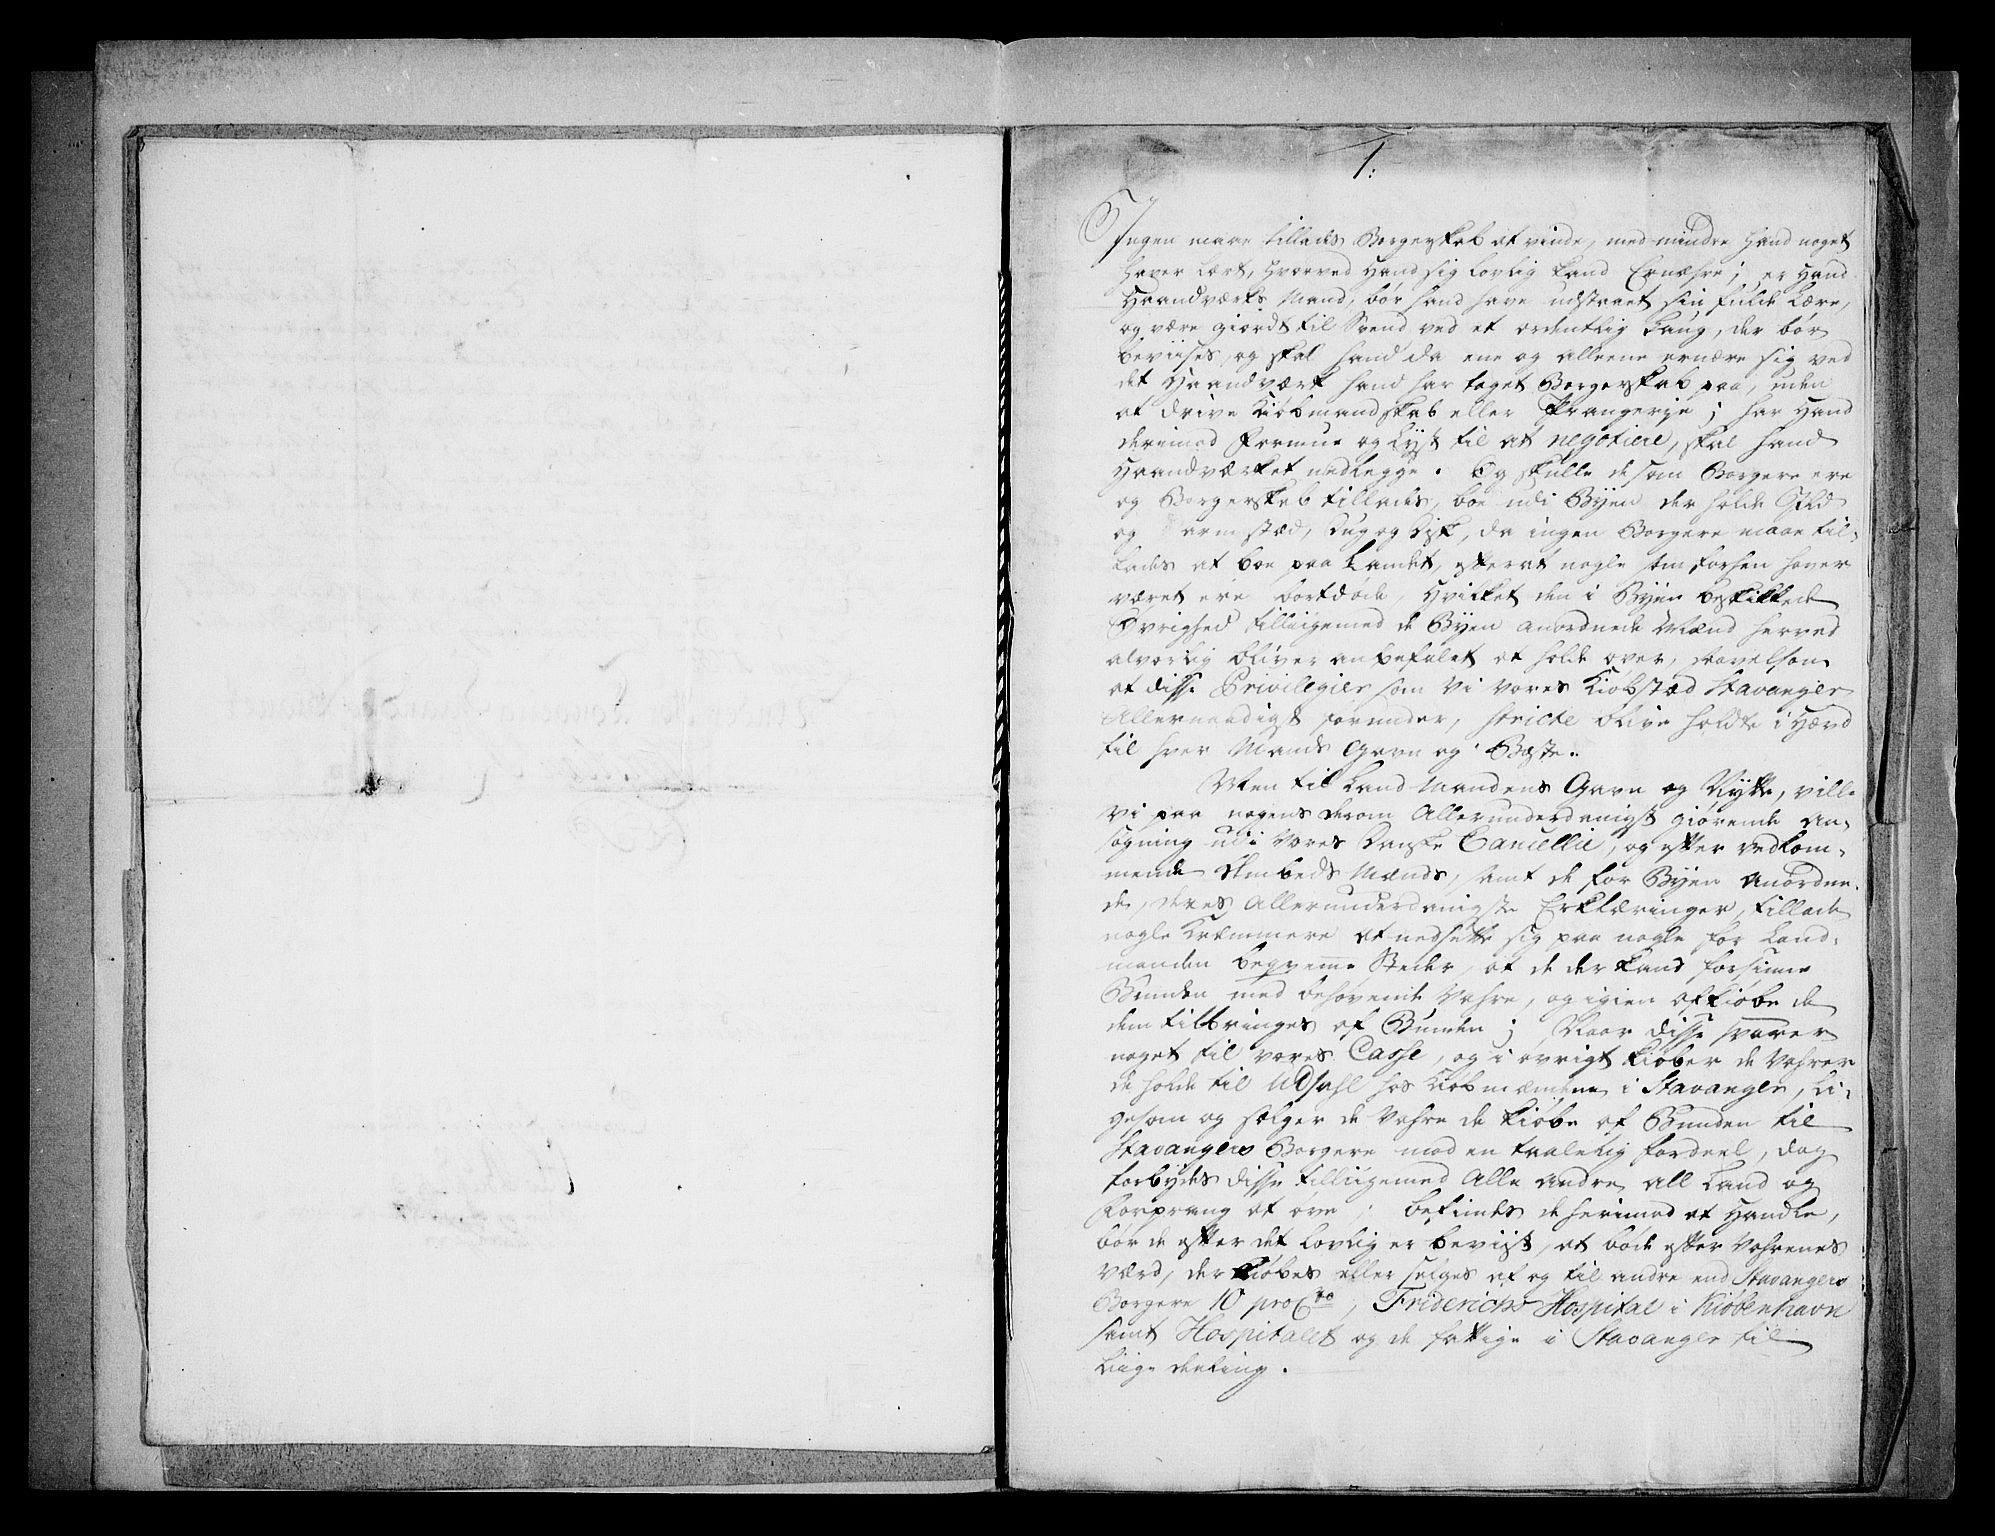 1.
Ingen maae tillades Borgerskab at vinde, med mindre Hand noget
haver Lært, hvorved Hand sig lovlig kand Ernæhre; er Hand
Haandværks Mand, bør hand have udstaaet sin fulde Lære,
og være giordt til Svend ved et ordentlig Laug, der bør
beviises, og skal hand da ene og alleene ernære sig ved
det Haandværk hand har taget Borgerskab paa, uden
at drive Kiøbmandskab eller Prangerje; har Hand
derimod Formue og Lyst til at negotiere, skal hand
Haandværket nedlegge. Og skulle de som Borgere ere
og Borgerskab tillades, boe udi Byen der holde Ild
og Arnested, Dug og Disk, da ingen Borgere maae til-
lades at boe paa Landet, efterat nogle som forhen haver
været ere bortdøde, Hvilket den i Byen beskikkede
Øvrighed tilligemed de Byen anordnede Mænd herved
alvorlig bliver anbefalet at holde over, saavelsom
at disse Privilegier som Vi vores Kiøbstæd Stavanger
Allernaadigst forunder, stricte blive holdte i Hævd
til hver Mands Gavn og Bæste.
Men til Land Mandens Gavn og Nytte, ville
Vi paa nogens derom Allerunderdanigst giørende An-
søgning udi Vores Danske Cancellie, og efter vedkom-
mende Ambeds Mænds, samt de for Byen Anordne-
de, deres Allerunderdanigste Erklæringer, tillade
nogle Kræmmere at nedsette sig paa nogle for Land-
manden beqveme Steder, at de der kand forsiune
Bunden med behøvende Vahre, og igien afkiøbe de
dem tilbringes af Bunden; Naar disse svarer
noget til vores Casse, og i øvrigt kiøber de Vahrer
de holde til Udsahl hos Kiøbmændene i Stavanger, Li-
gesom og sælger de Vahre de kiøbe af Bunden til
Stavangers Borgere mod en taalelig fordeel, dog
forbydes disse tilligemed Alle Andre all Land og
Forprang at øve; befindes de herimod at Handle,
bør de efter det Lovlig er beviist, at bøde efter Vahrenes
Værd, der kiøbes eller selges af og til andre end Stavangers
Borgere 10 pro Cto, Friderichs Hospital i Kiøbenhavn
samt Hospitalet og de fattige i Stavanger til
Liige deeling.